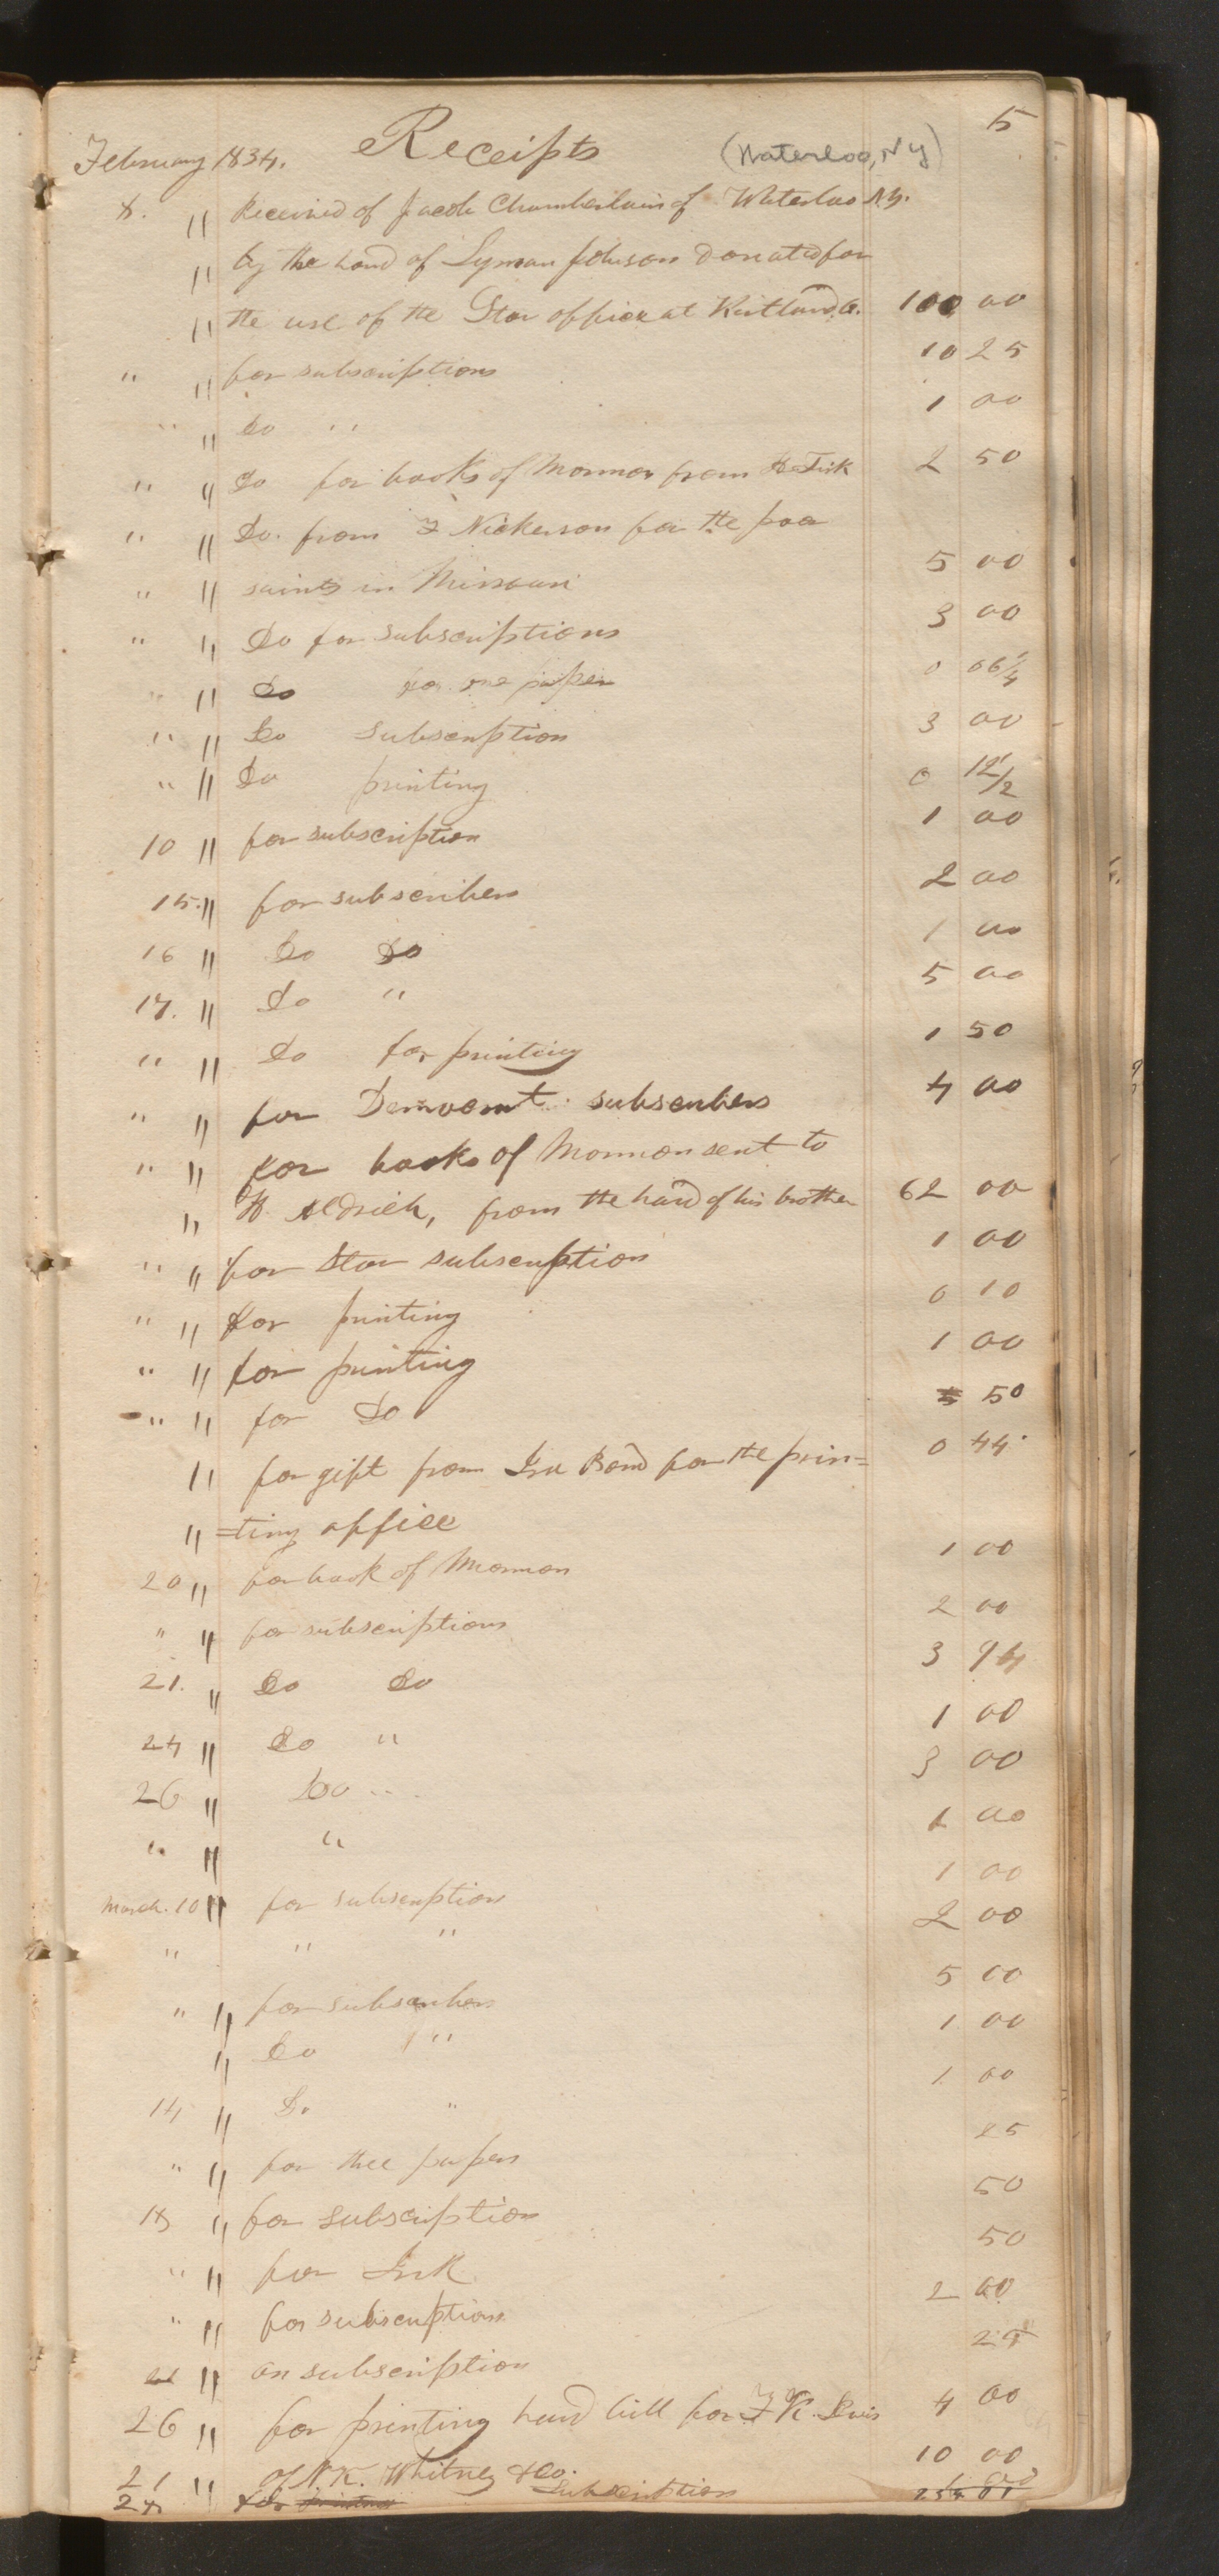 5
February 1834. Receipts (Waterloo, N Y)
8. " Received of Jacob Chamberlain of Waterloo N.Y.
" by the hand of Lyman Johnson donated for
" the use of the Star office at Kirtland, O. 100 00
" " for subscriptions 10 25
" " Do " 1 00
" " Do for books of Mormon from H Fisk 2 50
" " Do. from F Nickerson for the poor
" " saints in Missouri 5 00
" " Do for subscriptions 3 00
" " Do for one paper 0 06 1/4
" " Do subscription 3 00
" " Do printing 0 12 1/2
10 " for subscription 1 00
15. " for subscribers 2 00
16 " Do Do 1 00
17. " Do " 5 00
" " Do for printing 1 50
" " for Democrat subscribers 4 00
" " for books of Mormon sent to
" H. Aldrich, from the hand of his brother 62 00
" " for Star subscription 1 00
" " for printing 0 10
" " for printing 1 00
" " for Do 50
" for gift from Ira Bond for the prin= 0 44
" =ting office
20 " for book of Mormon 1 00
" " for subscriptions 2 00
21. " Do Do 3 94
24 " Do " 1 00
26 " Do " 3 00
" " " 1 00
March. 10 " for subscription 1 00
" " " 2 00
" " for subscribers 5 00
" Do " 1 00
14 " Do " 1 00
" " for thee papers 25
18 " for subscription 50
" " for Ink 50
" " for subscriptions 2 00
" on subscription 25
26 " for printing hand bill for 4 00
21 " of N. K. Whitney & Co. 10 00
28 " for printing Subscription